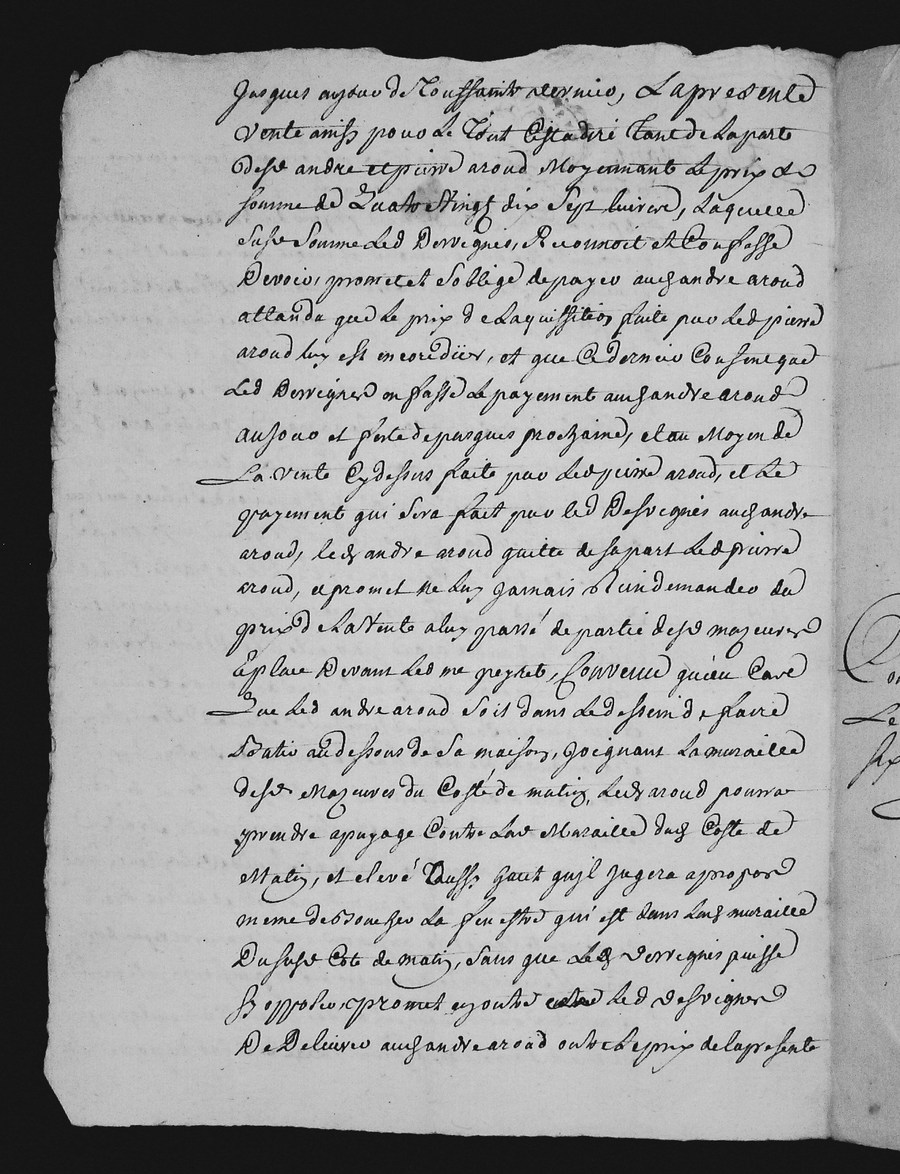 Jacques ayeuo de Toussaint vernio, La presente
vente ainsy pouo Le Tout Cestadire Tant de La part
desd andre et pierre aroud Moyennant Le prix et
somme de Quatre Vingt dix Sept livres, Laquelle
susd Somme Led Desvignes, Reconnoit et Confesse
Devoio, promet et soblige de payeo aud andre aroud
attandu que Le prix de Laquisition faite pao Led pierre
aroud luy est encore dû, et que Ce dernieo Consent que
Led Desvignes en fasse Le payement aud andre aroud
au jouo et feste de pasques prochaine, et au Moyen de
La vente Cy dessus faite pao Led pierre aroud, et Le
payement qui Sera fait pao led Desvignes aud andre
aroud, led andre aroud quitte de sa part Led pierre
aroud, et promet Ne Luy Jamais Rien demandeo du
prix de La Vente a luy passé de partie desd mazeures
Et place Devant Led me peyret, Convenu qu'en Cas
Que Led andre aroud soit dans Le dessein de faire
Batio au dessous de Sa maison, Joignant La muraille
desd Mazeures du Costé de matin, Led aroud pourra
prendre apuyage Contre Lad Muraille dud Costé de
Matin, et elevé Aussy haut quil Jugera a propos
meme de Boucheo La fenestre qui est dans Lad muraille
Du susd Coté de matin, sans que Led Desvignes puisse
sy opposeo, promet en outre Led desvignes
De Delivreo aud andre aroud outre Le prix de la presente